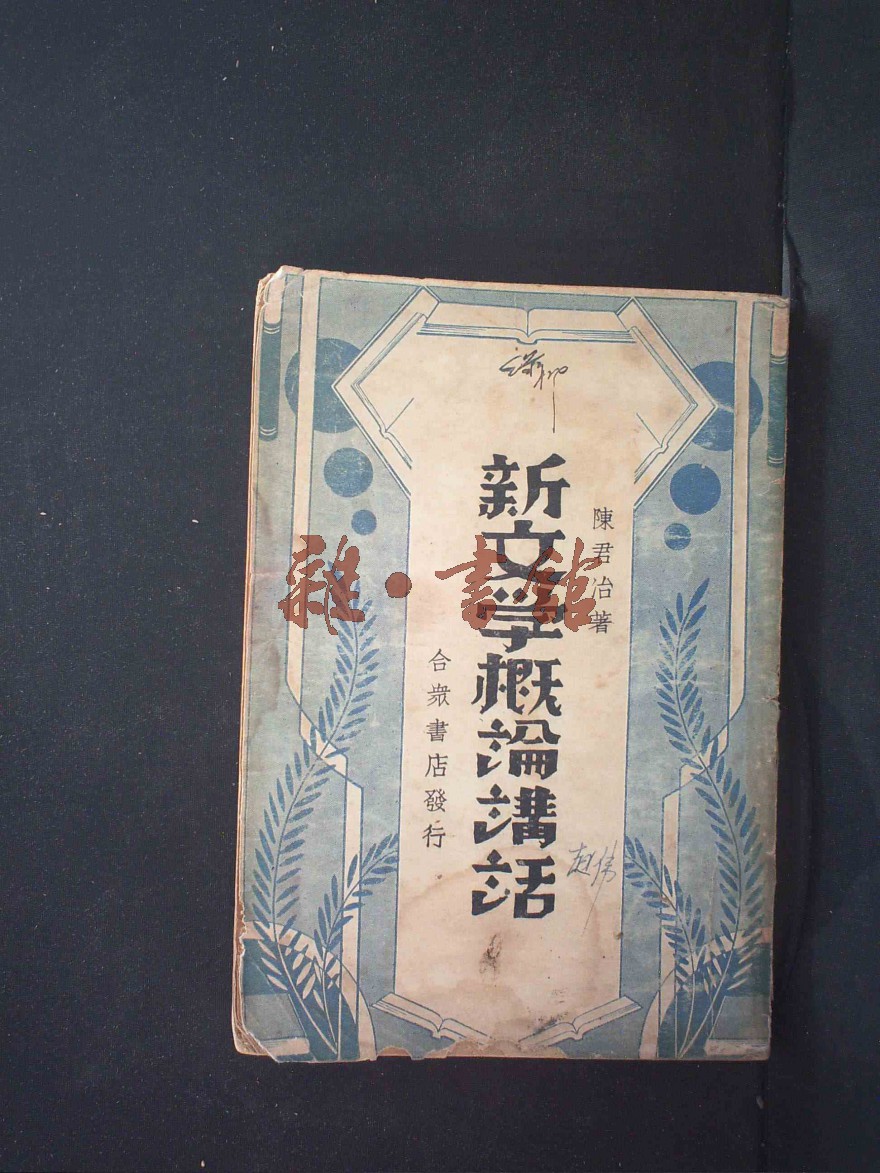 陳君冶著
新文学概論講話
合衆書店發行
雜·書館
趙偉